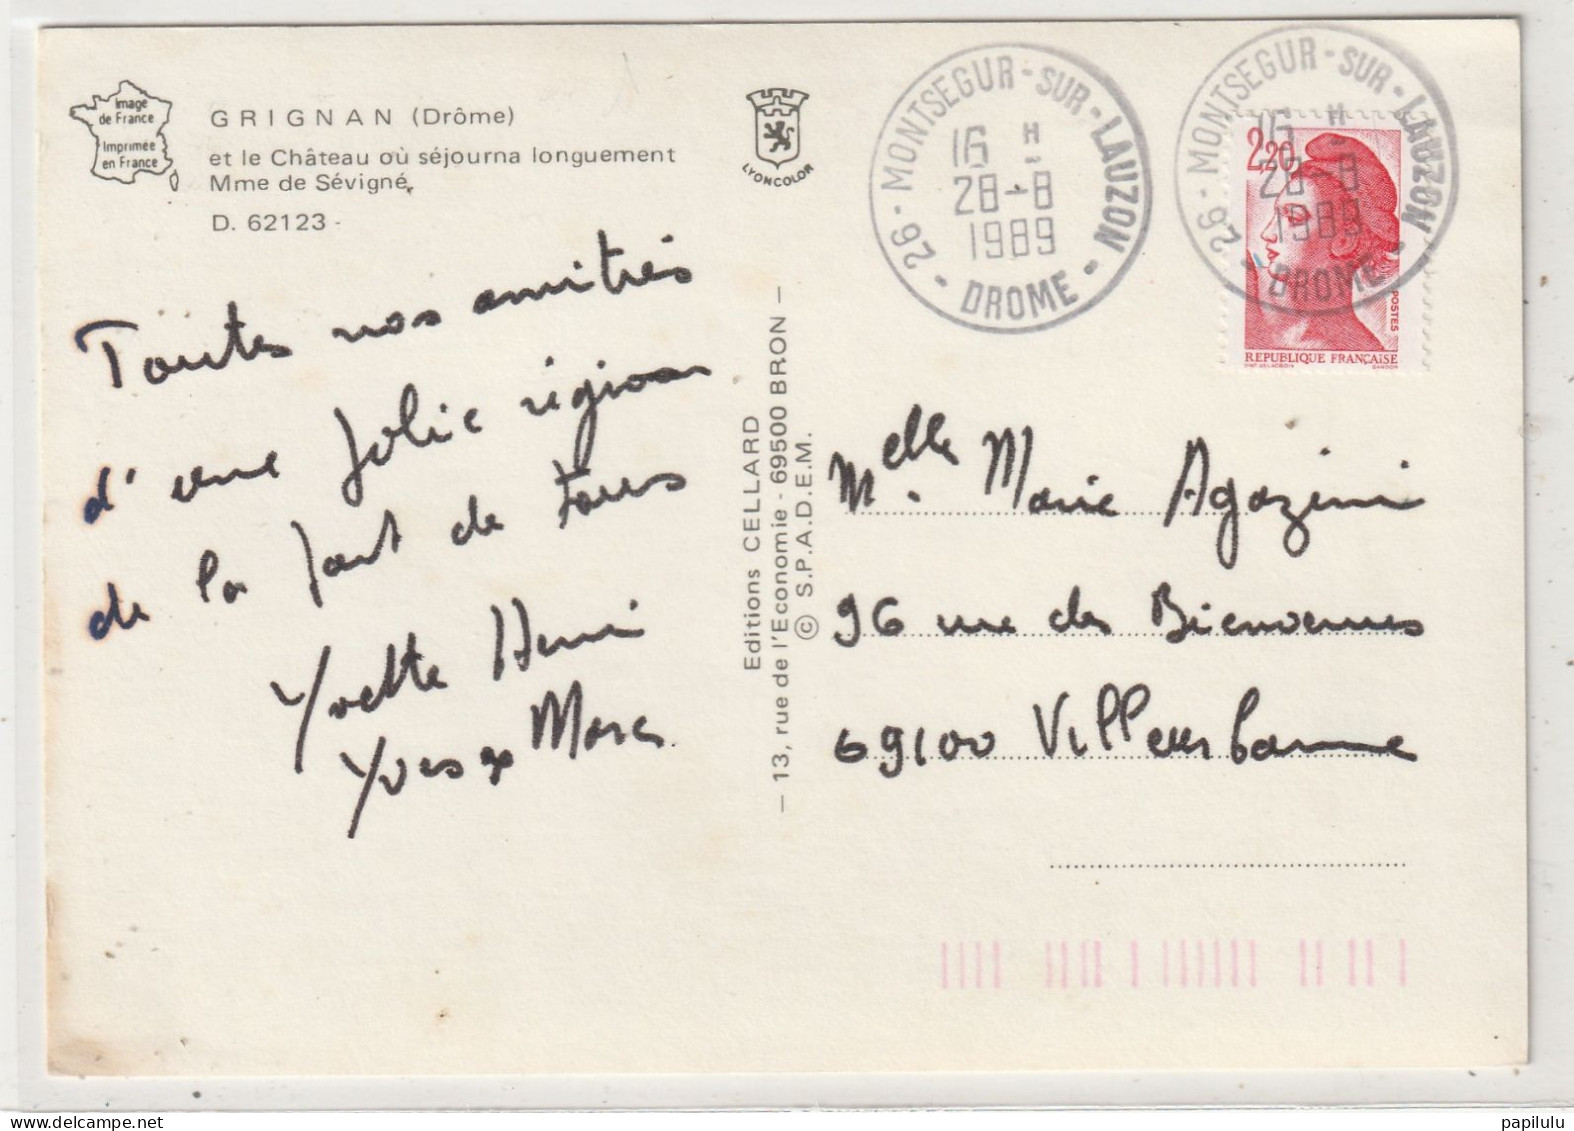 Image
de France
Imprimée
en France
GRIGNAN (Drôme)
et le Château où séjourna longuement
Mme de Sévigné
D. 62123 -
LYONCOLOR
26 - MONTSEGUR - SUR - LAUZON - DROME -
16 H
28-8
1989
26 - MONTSEGUR - SUR - LAUZON - DROME -
16 H
28-8
1989
2,20
POSTES
REPUBLIQUE FRANÇAISE
GANDON
Toutes nos amitiés
d'une jolie région
de la part de tous
Yvette Henri
Yves Marc
Editions CELLARD
— 13, rue de l'Economie - 69500 BRON —
© S.P.A.D.E.M.
Melle. Marie Agozini
96 rue des Bienvenues
69100 Villeurbanne
papilulu